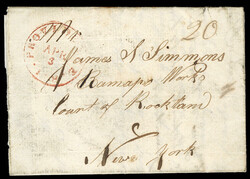 20
APR
3
James S Simmons
Ramapo Works
Count of Rockland
New York